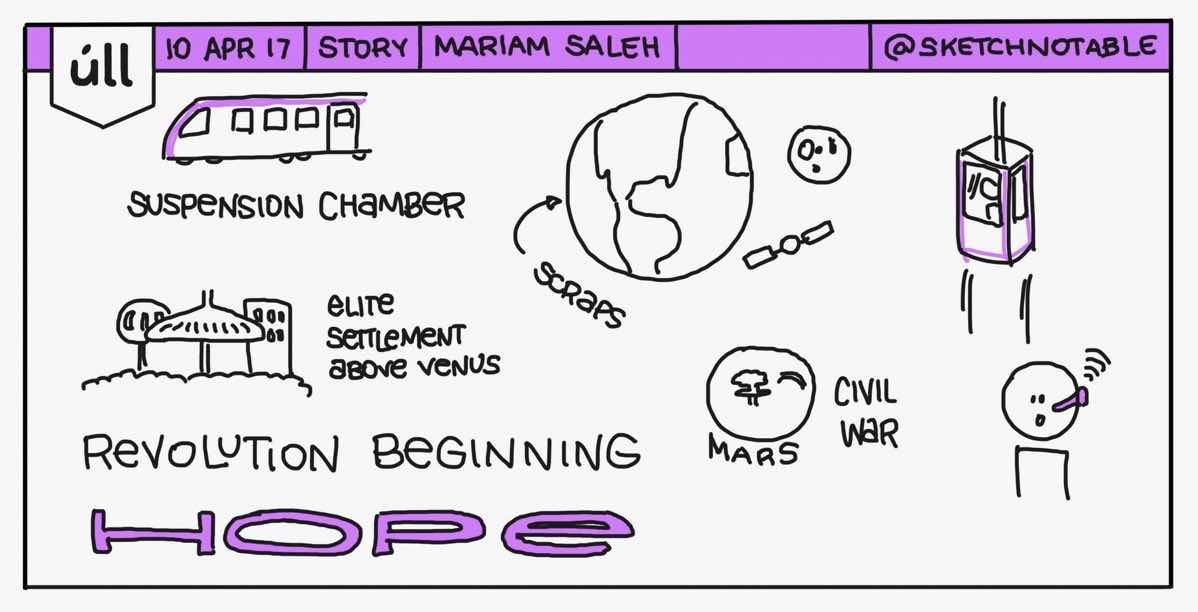 úll
10 APR 17
STORY
MARIAM SALEH
@SKETCHNOTABLE
SUSPENSION CHAMBER
SCRAPS
ELITE
SETTLEMENT
ABOVE VENUS
MARS
CIVIL
WAR
REVOLUTION BEGINNING
HOPE